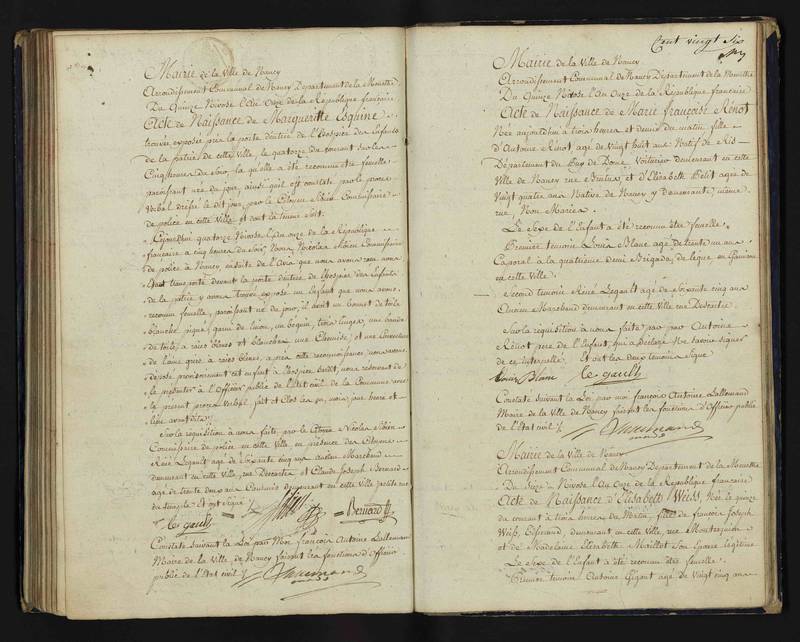 Mairie de la Ville de Nancy
Arrondissement Communal de Nancy Département de la Meurthe
Du Quinze Nivose l'An Onze de la République française
Acte de Naissance de Margueritte Esquine
trouvée exposée près la porte d'entrée de l'hospice des Enfants
de la patrie de cette Ville, le quatorze du courant sur les
Cinq heures du soir, la qu'elle a été reconnue être femelle
paroissant née du jour, ainsi qu'il est constaté par le procès
Verbal dressé le dit jour, par le Citoyen Commissaire
de police en cette Ville et dont la teneur suit.
Cejourd'hui quatorze Nivose l'an onze de la République
française à cinq heures du soir, Nous, Nicolas Commissaire
de police à Nancy, ensuite de l'avis que nous avons reçu nous
étant transporté devant la porte d'entrée de l'hospice des Enfants
de la patrie y avons trouvé exposé un Enfant que nous avons
reconnu femelle, paroissant né de jour, il avoit un bonnet de toile
blanche piqué, garni de linon, un beguin, trois linges, une bande
de toile, à raies bleues et blanches, une Chemise, et une Couverture
de laine grise à raies bleues, après cette reconnoissance, nous avons
déposé provisoirement cet enfant à l'hospice dudit, nous réservant de
le présenter à l'Officier public de l'Etat civil de la Commune avec
le présent procès Verbal, fait et Clos les an, mois, jour, heure et
lieu avant dits
Sur la réquisition à nous faite, par le Citoyen Nicolas
Commissaire de police en cette Ville en présence des Citoyens
René Legault agé de soixante cinq ans ancien Marchand
demeurant en cette Ville, rue Descartes et Claude Joseph Bernard
agé de trente deux ans Commis demeurant en cette Ville
et ont signé
le gault Bernard
Constaté suivant la Loi par Moi françois Antoine Lallemand
Maire de la Ville de Nancy faisant les fonctions d'Officier
public de l'Etat civil
Cent vingt Six
Mairie de la Ville de Nancy
Arrondissement Communal de Nancy Département de la Meurthe
Du Quinze Nivose l'An Onze de la République française
Acte de Naissance de Marie françoise Rénot
Née aujourd'hui à trois heures et demie du matin fille
d'Antoine Rénot agé de Vingt huit ans Natif de Ris
Département du Puy de Dome, Voiturier demeurant en cette
Ville de Nancy rue Brutus, et d'Elisabeth Petit agée de
Vingt quatre ans Native de Nancy y demeurante même
rue, Non Mariés.
Le Sexe de l'Enfant a été reconnu être femelle.
Premier témoin Louis Blanc agé de trente un ans
Caporal à la quatrième demi Brigade, de ligne, en Garnison
en cette Ville
Second témoin René Legault agé de soixante cinq ans
Ancien Marchand demeurant en cette Ville rue Descartes.
Sur la réquisition à nous faite par par Antoine
Rénot père de l'Enfant, qui a déclaré Ne savoir signer
de ce interpellé. Et ont les deux temoins signé
Louis Blanc le gault
Constaté suivant la Loi par moi françois Antoine Lallemand
Maire de la Ville de Nancy faisant les fonctions d'Officier public
de l'Etat civil
Mairie de la Ville de Nancy
Arrondissement Communal de Nancy Département de la Meurthe
Du Seize Nivose l'An Onze de la République française
Acte de Naissance d'Elisabeth Weiss, Née le quinze
du courant à trois heures du Matin fille de françois Joseph
Weiss, demeurant en cette Ville, rue Montesquieu
et de Madelaine Elisabeth Maillot Son Epouse légitime
Le Sexe de l'Enfant a été reconnu être femelle.
Premier témoin Antoine Gigout agé de Vingt cinq ans